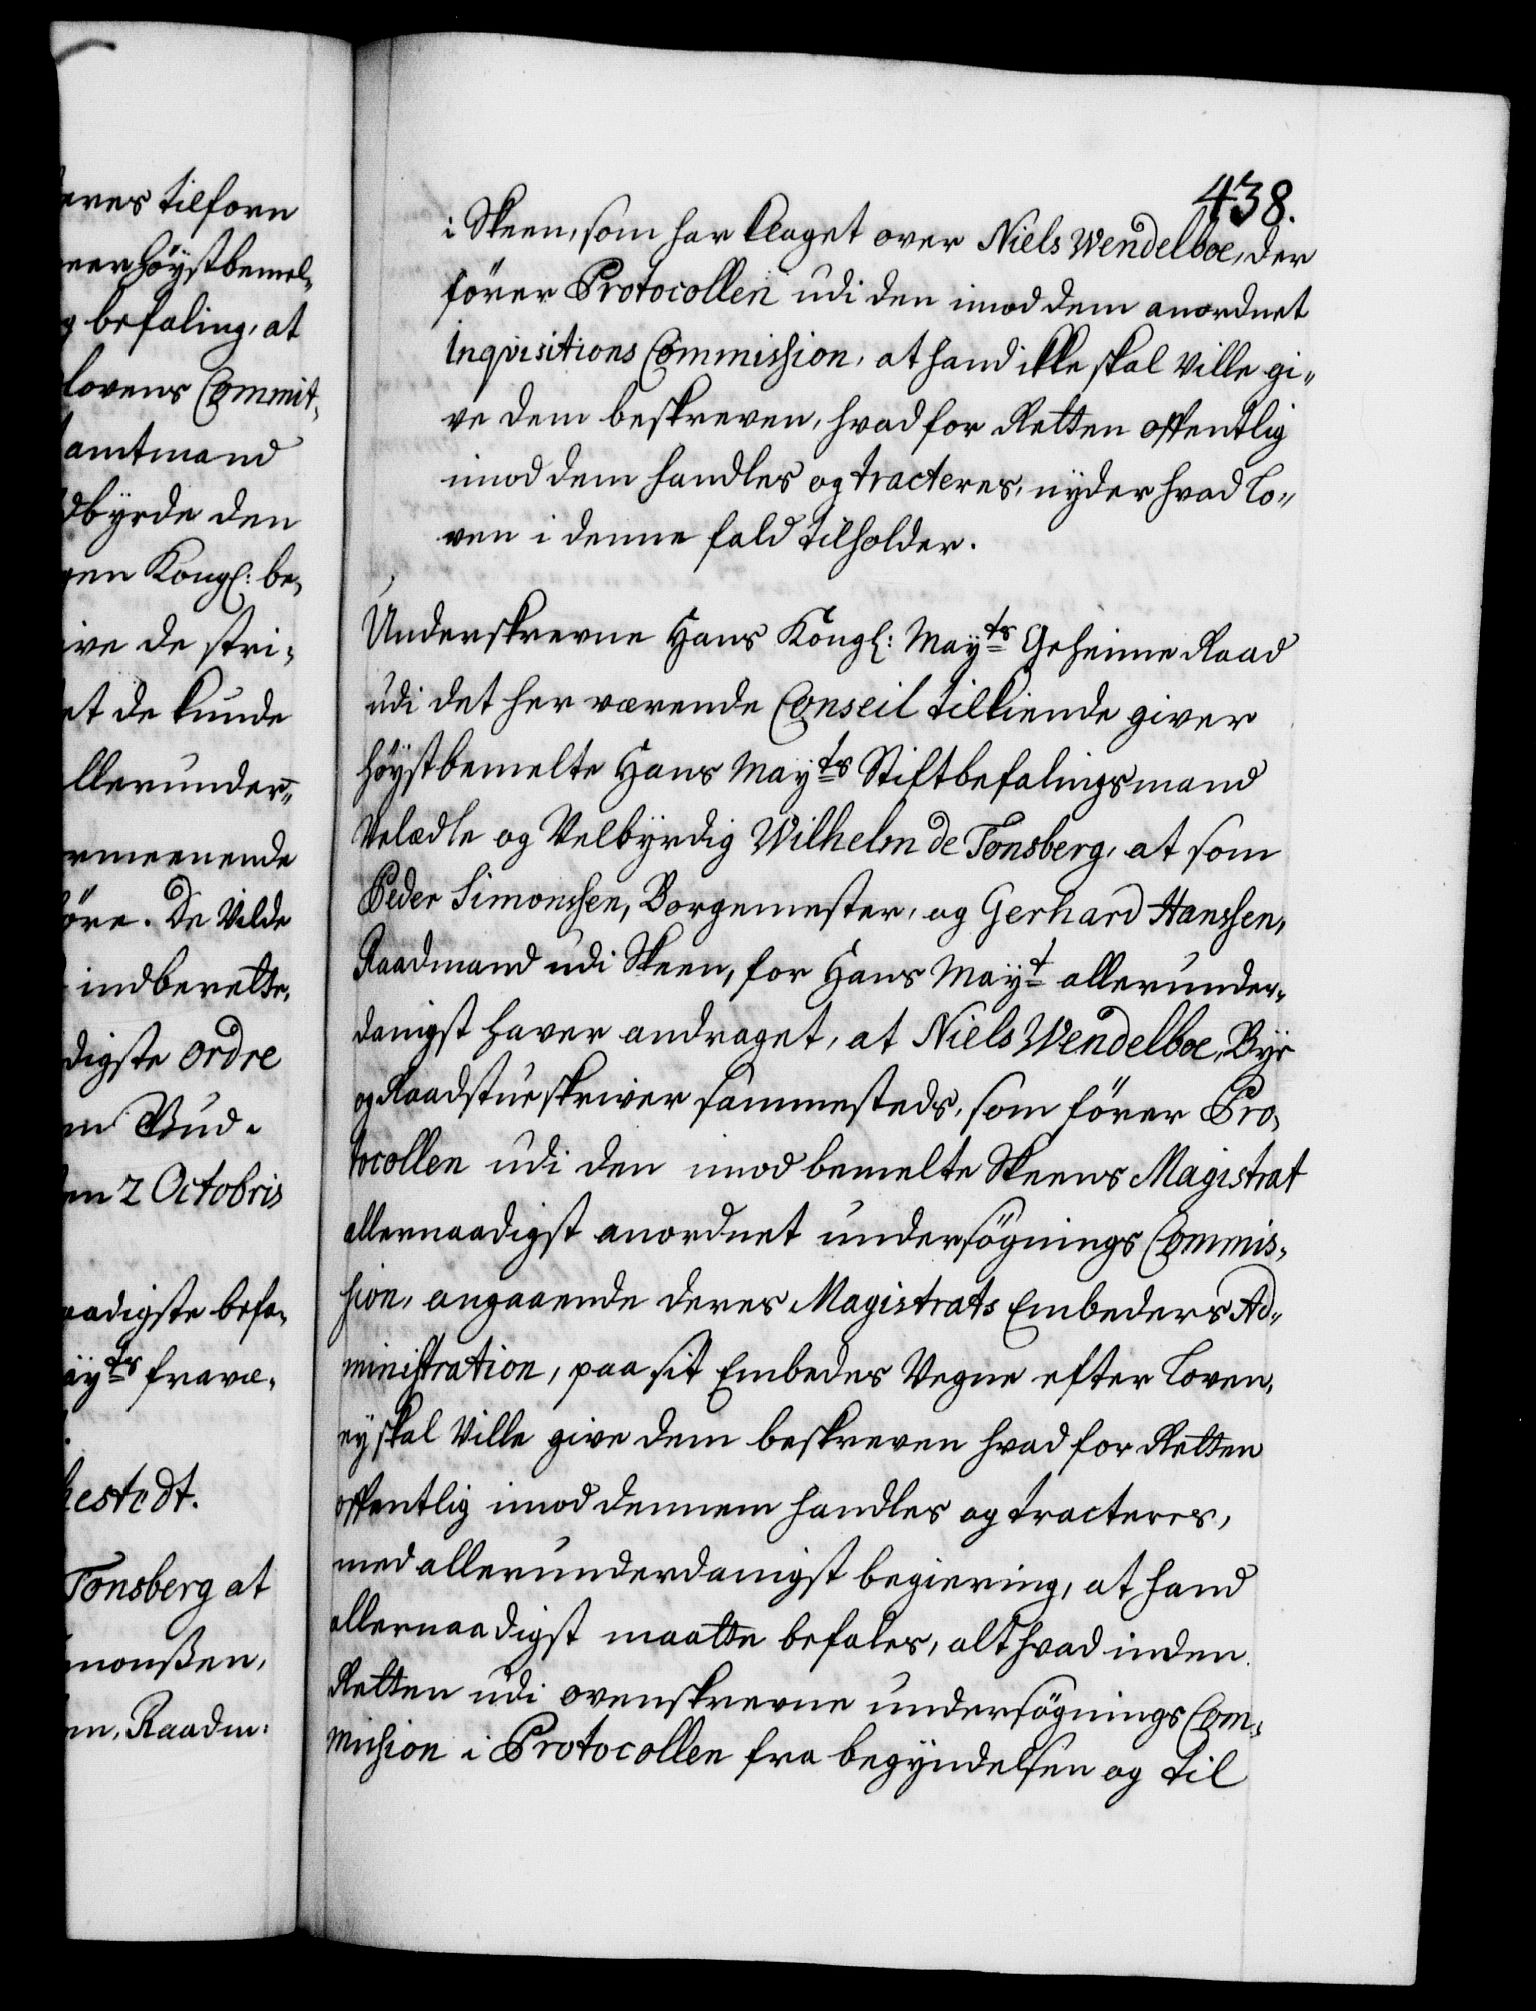 eres tilforn
neer höystbemel„
g befaling, at
lovens Commit„
amtmand
dbyrde den
gen Kongl: be„
ive de stri„
et de kunde
llerunder„
rmeenende
öre. De Vilde
indberette,
digste ordre
m Bud.
en 2 Octobris
aadigste befa„
aÿts fravæ„
hestedt.
Tonsberg at
monßen,
en, Raadm:
438.
i Skeen, som har klaget over Niels Wendelboe, der
förer Protocollen udi den imod dem anordnet
Inqvisitions Commission, at hand ikke skal Ville gi„
ve dem beskreven, hvad for Retten offentlig
imod dem handles og tracteres, nyder hvad Lo„
ven i denne fald tilholder.
Underskrevne Hans Kongl: Mayts Geheime Raad
udi det her værende Conseil tilkiende giver
höystbemelte Hans Mayts Stiftbefalingsmand
Velædle og Velbyrdig Wilhelm de Tonsberg, at som
Peder Simonssen, Borgemester, og Gerhard Hanssen,
Raadmand udi Skeen, for Hans Mayt allerunder„
danigst haver andraget, at Niels Wendelboe, Bye
og Raadstueskriver sammesteds, som förer Pro„
tocollen udi den imod bemelte Skeens Magistrat
allernaadigst anordnet undersögnings Commis„
sion, angaaende deres Magistrats Embeders Ad„
ministration, paa sit Embedes Vegne efter Loven,
ey skal Ville give dem beskreven hvad for Retten
offentlig imod dennem handles og tracteres,
med allerunderdanigst begiering, at hand
allernaadigst maatte befales, alt hvad inden
Retten udi ovenskrevne undersögnings Com„
mission i Protocollen fra begyndelsen og til